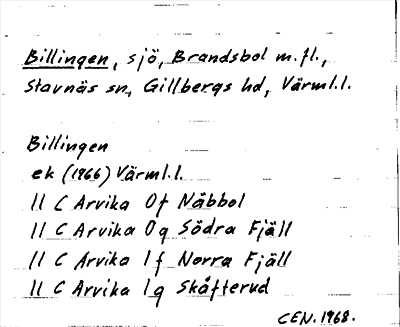 Billingen, sjö, Brandsbol m.fl.,
Stavnäs sn, Gillbergs hd, Värml.l.
Billingen
ek (1966) Värml.l.
11 C Arvika 0f Näbbol
11 C Arvika 0g Södra Fjäll
11 C Arvika 1f Norra Fjäll
11 C Arvika 1g Skåfterud
CEN. 1968.